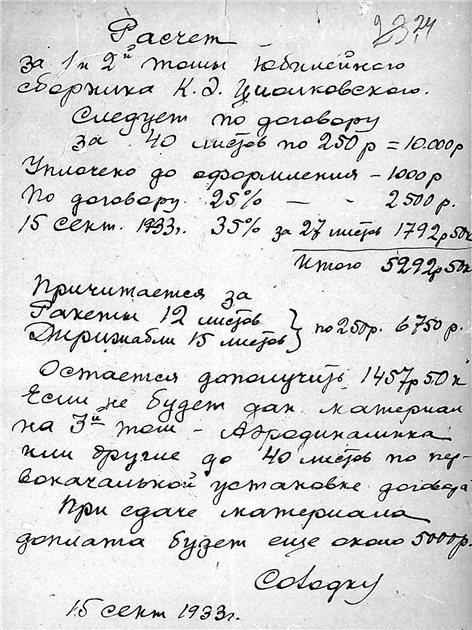 23 24
Расчет
за 1 и 2й томы Юбилейного
сборника К.Э. Циолковского.
Следует по договору
за 40 листов по 250 р = 10.000 р
Уплочено до оформления – 1000 р
По договору 25% – - 2500 р.
15 сент. 1933 г. 35% за 27 листов 1792 р 50 к
Итого 5292 р 50 к
Причитается за
Ракеты 12 листов
Дирижабли 15 листов } по 250 р. 6750 р.
Остается дополучить 1457 р 50 к
Если не будет дан материал
на 3й том – Аэродинамика
или другие до 40 листов по пер-
воначальной установке договора
При сдаче материала
доплата будет еще около 5000 р.
15 сент 1933 г.